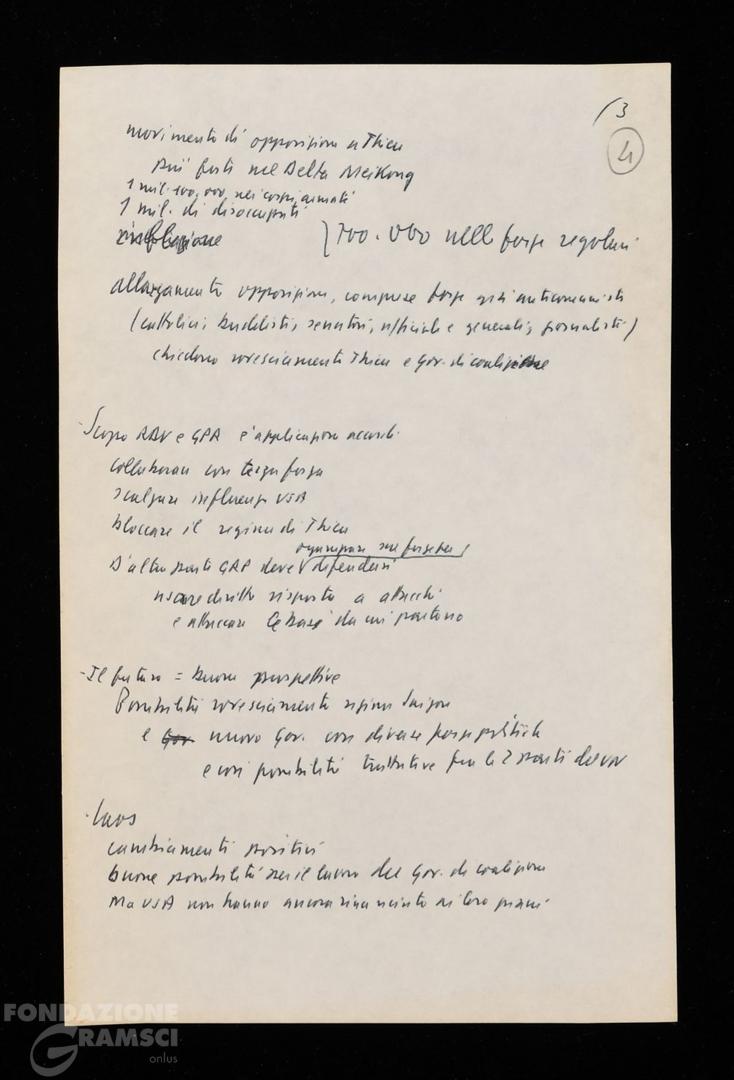 /3
4
movimento di opposizione a Thieu
più forti nel Delta Meikong
1 mil. 100.000 nei corpi armati
1 mil. di disoccupati
inflazione } 700.000 nelle forze regolari
allargamento opposizione, comprese forze già anticomuniste
(cattolici, buddisti, senatori, ufficiali e generali, giornalisti)
chiedono rovesciamento Thieu e Gov. di coalizione
- Scopo RDV e GPR è applicazione accordi
collaborare con terza forza
scalzare influenza USA
bloccare il regime di Thieu
organizzare sue forze
D'altra parte GRP deve V difendersi
risposta a attacchi
e attaccare le basi da cui partono
- Il futuro = buone prospettive
Possibilità rovesciamento regime Saigon
e Gov. nuovo Gov. con diverse forze politiche
e così possibilità trattative fra le 2 parti del VN
- Laos
cambiamenti positivi
buone possibilità per il lavoro del Gov. di coalizione
Ma USA non hanno ancora rinunciato ai loro piani
FONDAZIONE
GRAMSCI
onlus